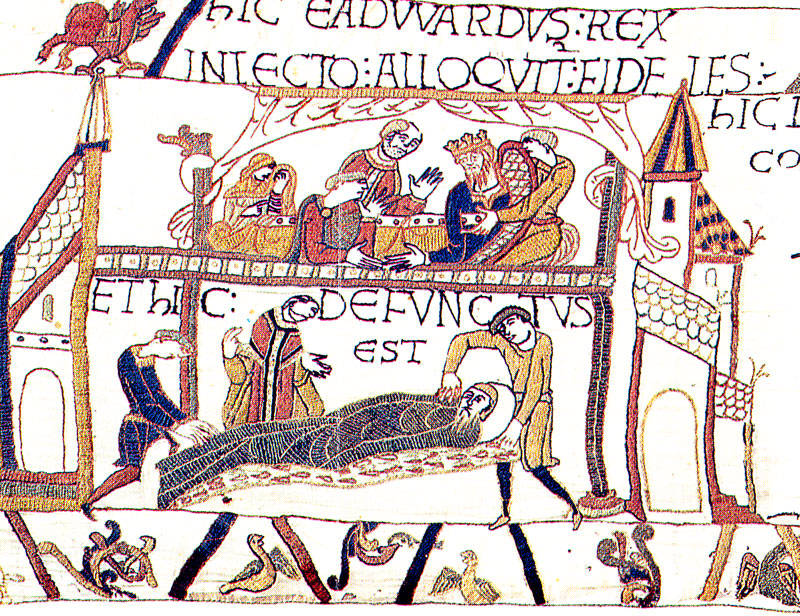 hIC EADVVARDVS:REX
IN LECTO:ALLOQVIT:FIDELES:
hIC
ET hIC: DEFVNCTVS
EST